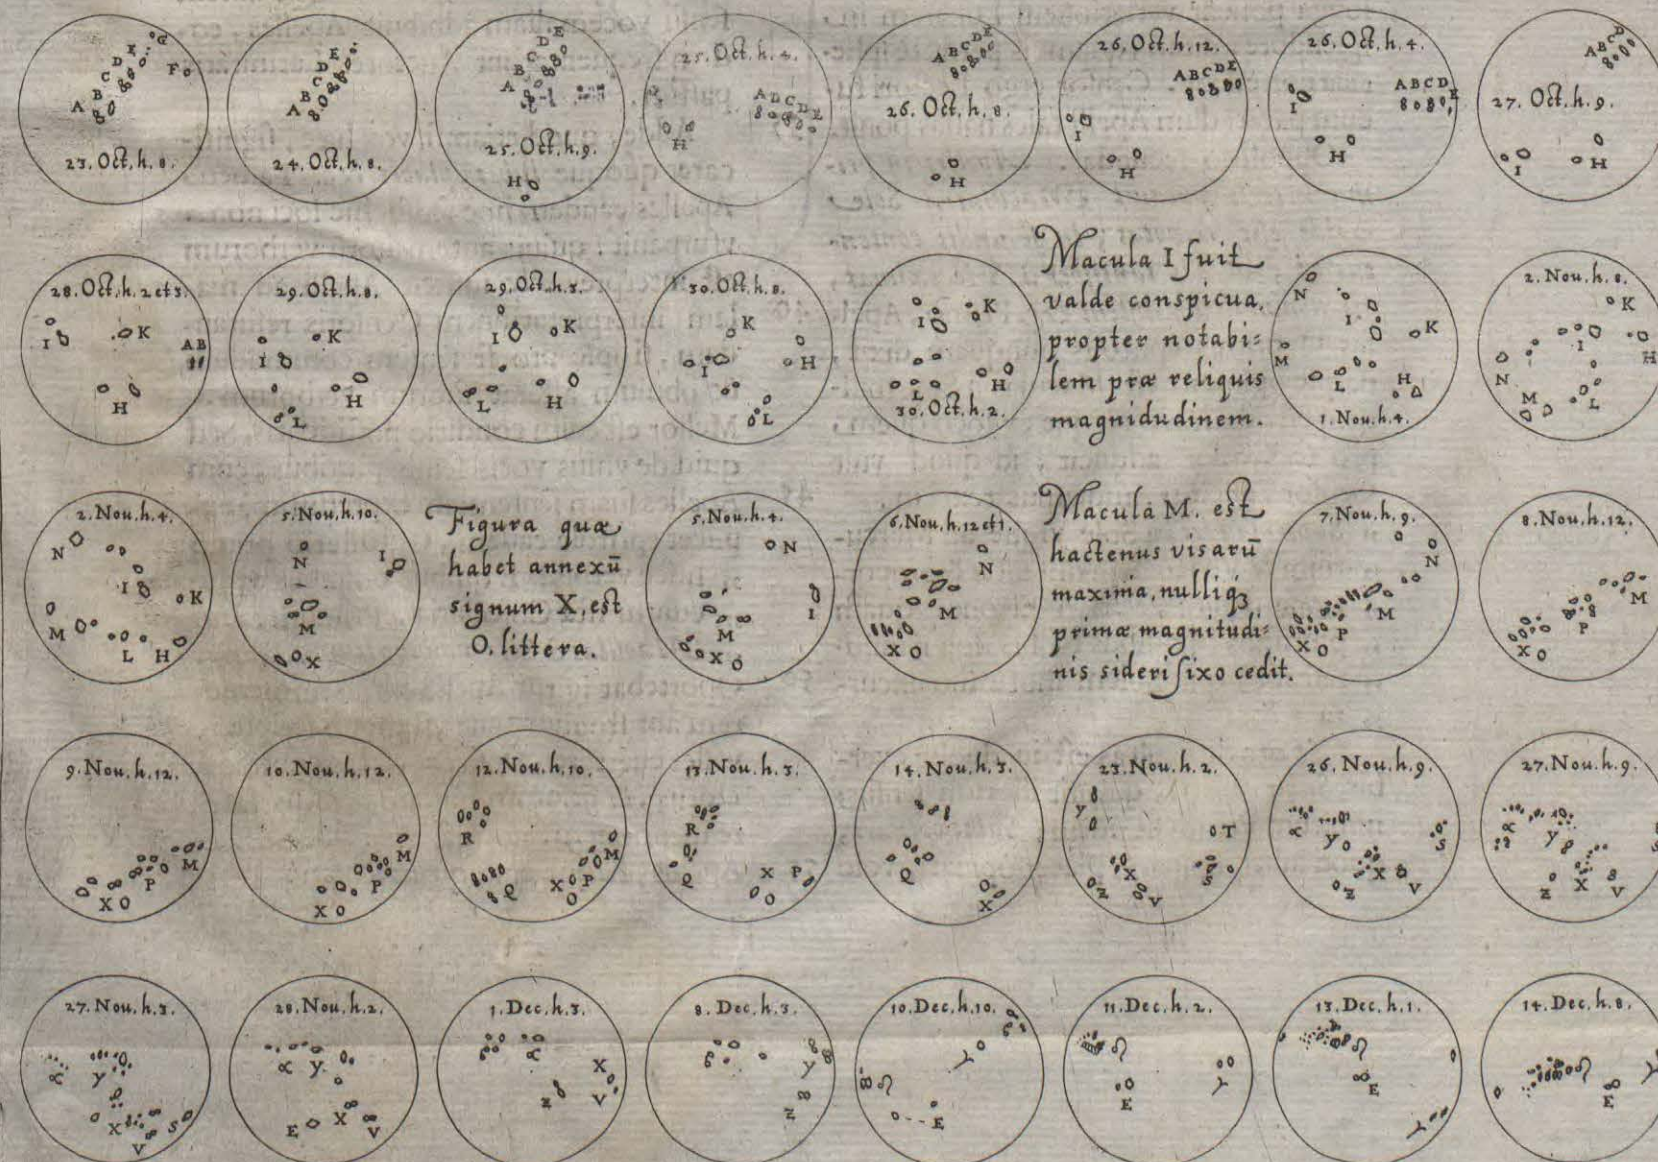 G
E
D F
C
B
A
23. Oct. h. 8.
E
D
C
B
A
24. Oct. h. 8.
E
D
C
B
A
25. Oct. h. 9.
H
25. Oct. h. 4.
A D C D E
H
A B C D E
26. Oct. h. 8.
H
26. Oct. h. 12.
A B C D E
I
H
26. Oct. h. 4.
A B C D E
I
H
A B C D
27. Oct. h. 9.
I H
28. Oct. h. 2 et 3.
I K A B
H
29. Oct. h. 8.
K
I
H
L
29. Oct. h. 3.
I K
L H
30. Oct. h. 8.
K
I H
L
I K
H
L
30. Oct. h. 2.
Macula I fuit
valde conspicua,
propter notabi=
lem præ reliquis
magnidudinem.
N
I K
M
L H
1. Nou. h. 4.
2. Nou. h. 8.
K
I H
N
M L
2. Nou. h. 4.
N
I K
M
L H
5. Nou. h. 10.
N I
M
X
Figura quæ
habet annexū
signum X, est
O, littera.
5. Nou. h. 4.
N
I
M
X O
6. Nou. h. 12 et 1.
N
M
X O
Macula M. est
hactenus visarū
maxima, nulliq₃
primæ magnitudi=
nis sideri fixo cedit.
7. Nou. h. 9.
N
M
P
X O
8. Nou. h. 12.
M
P
X O
9. Nou. h. 12.
M
P
X O
10. Nou. h. 12.
M
P
X O
12. Nou. h. 10.
R
M
X P
Q O
13. Nou. h. 3.
R
X P
Q O
14. Nou. h. 3.
Q
X
23. Nou. h. 2.
Y
T
X S
Z V
26. Nou. h. 9.
∝ Y
S
X V
Z
27. Nou. h. 9.
∝ Y
S
X
Z V
27. Nou. h. 3.
∝ Y
X S
V
28. Nou. h. 2.
∝ Y
E X V
1. Dec. h. 3.
∝
X
Z V
8. Dec. h. 3.
Y
Z
10. Dec. h. 10.
♈
♌
E
11. Dec. h. 2.
♌
♈
E
13. Dec. h. 1.
♌
E
♈
14. Dec. h. 8.
♌
♈
E